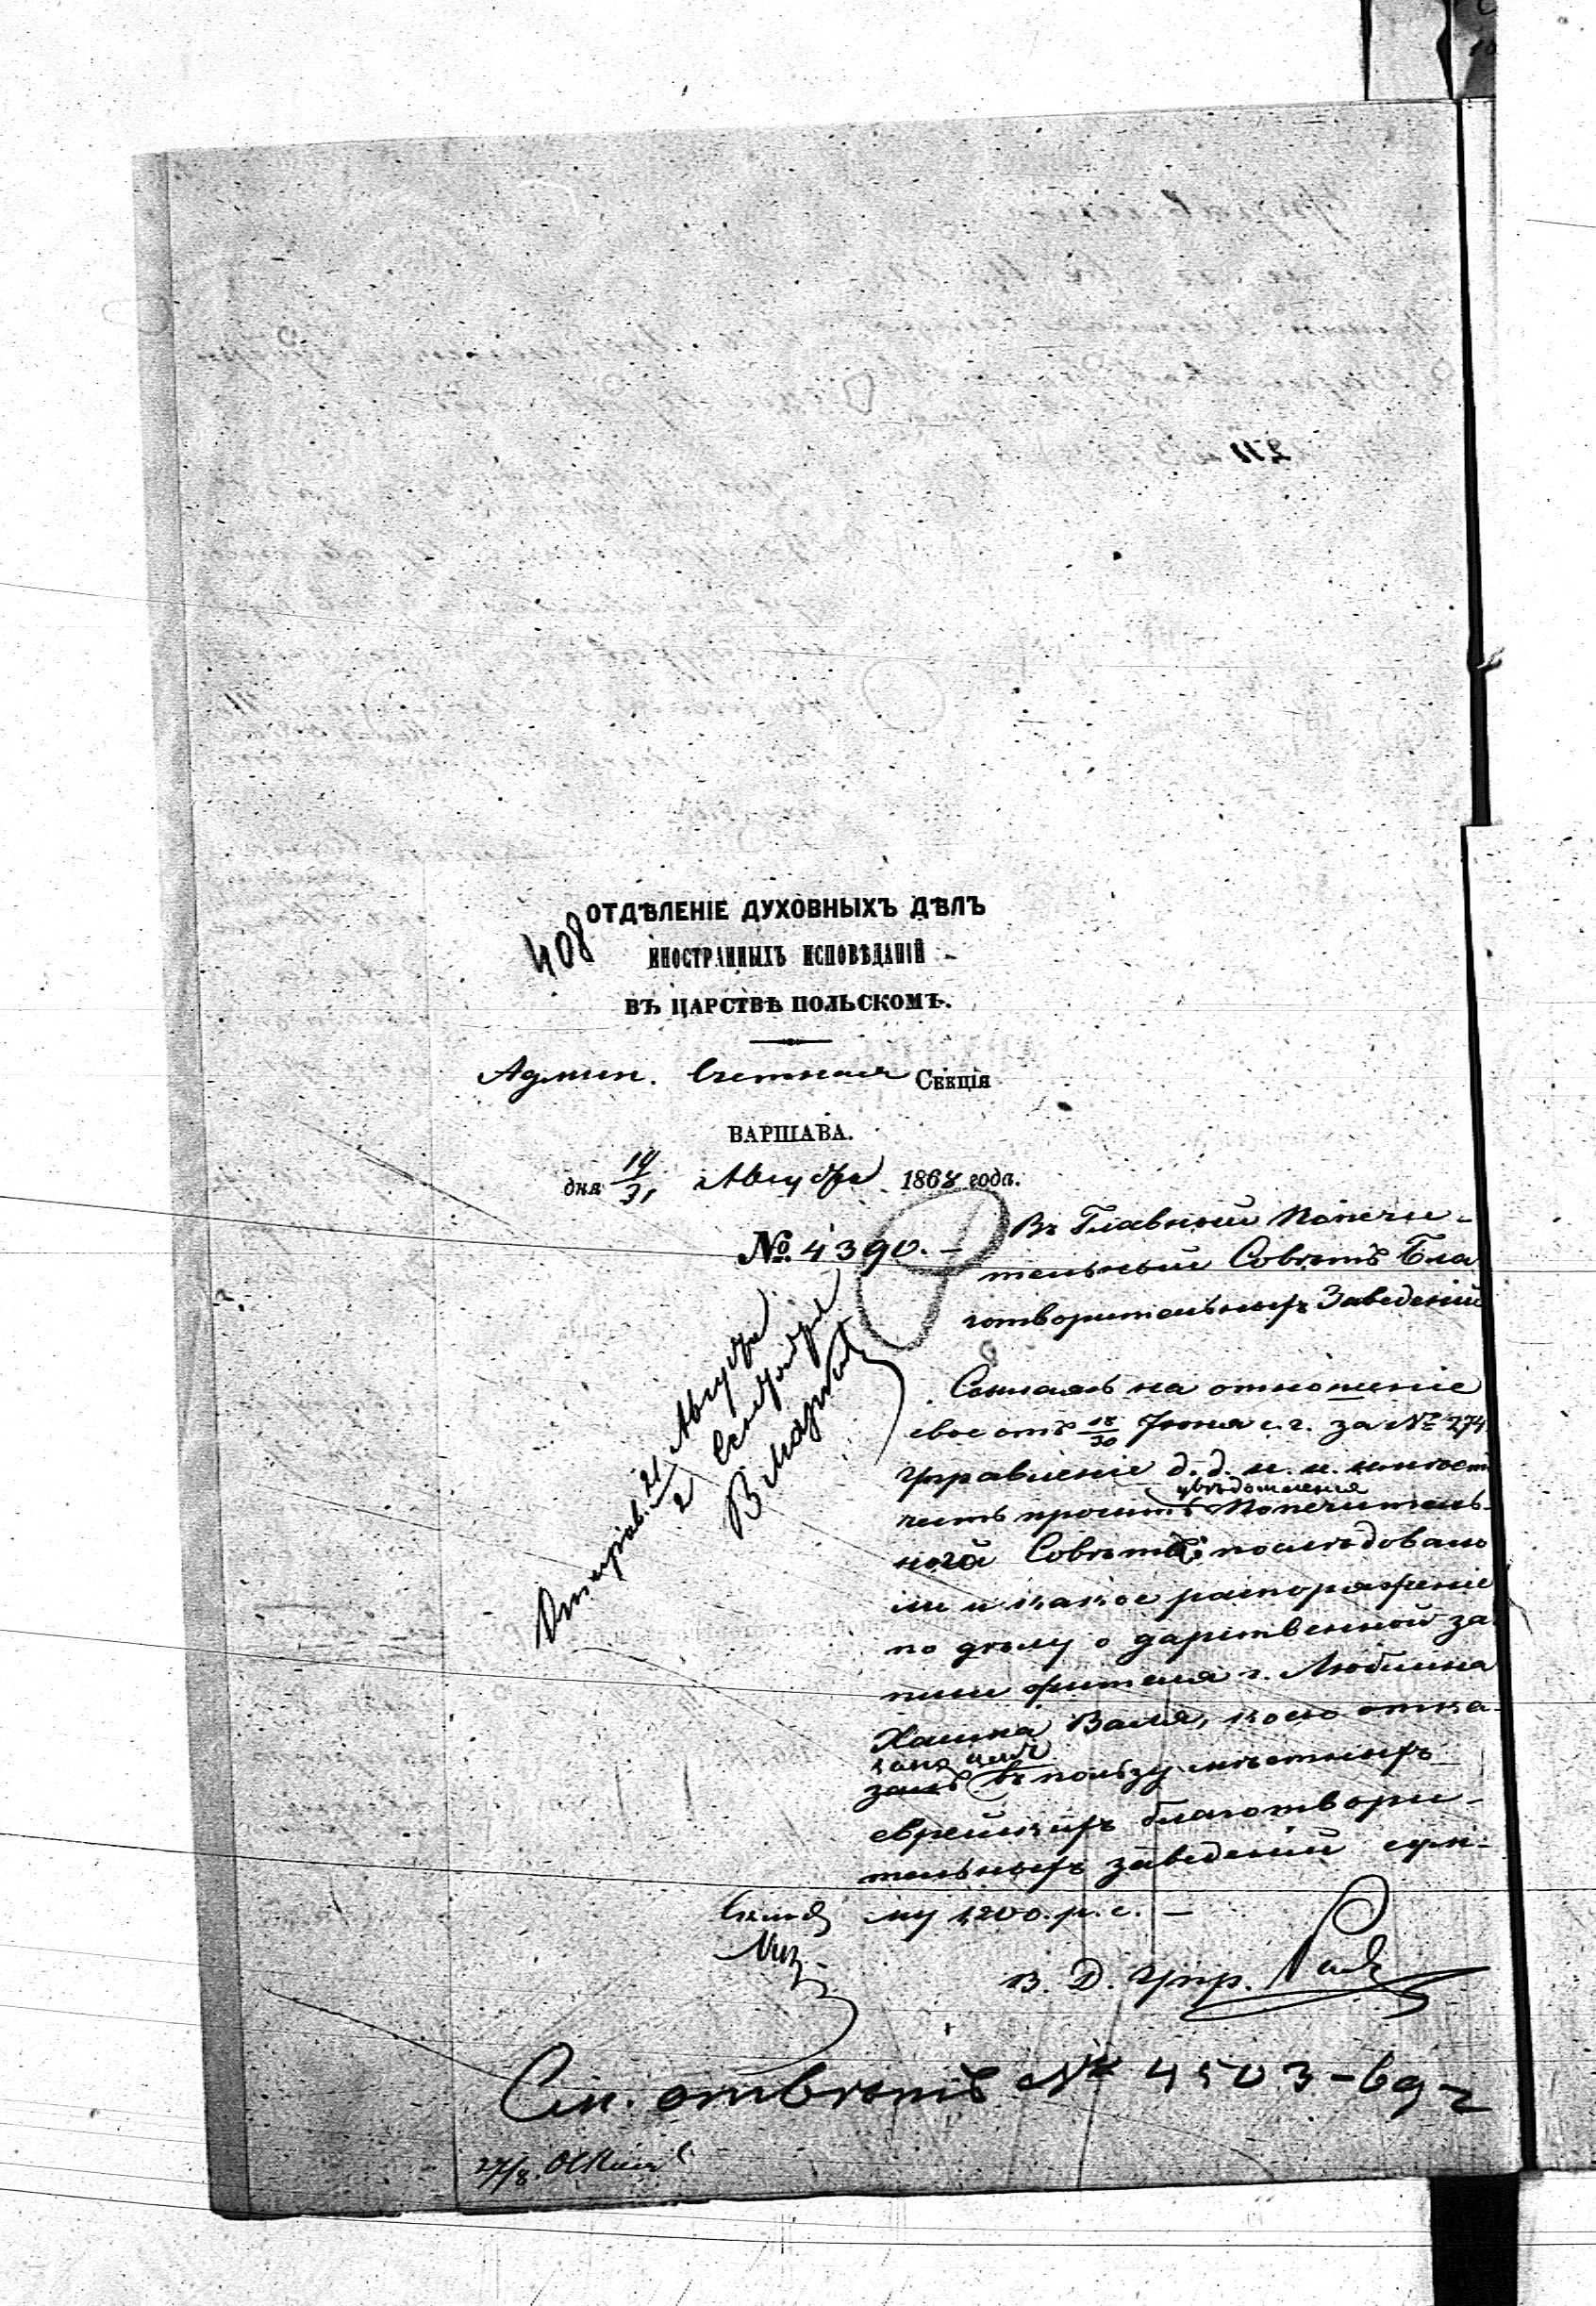 408
ОТДѢЛЕНІЕ ДУХОВНЫХЪ ДѢЛЪ
ИНОСТРАННЫХЪ ИСПОВѢДАНІЙ
ВЪ ЦАРСТВѢ ПОЛЬСКОМЪ.
Админ. Счетная Секція
ВАРШАВА.
дня 19/31 Августа 1868 года.
№ 4390.
Въ Главный Попечи-
тельный Совѣтъ Бла
готворительныхъ Заведеній
Отправ. 21 Августа
2 Сентября
Ссылаясь на отношеніе
свое отъ 18/30 Іюня с. г. за № 274
Управленіе д. д. и. и. имѣетъ
увѣдомленія
честь просить Попечитель-
наго Совѣта; послѣдовало
ли и какое распоряженіе
по дѣлу о дарственной за
писи жителя г. Люблина
Хаима Валя, коею отка-
зана имъ
залъ въ пользу мѣстныхъ
еврейскихъ благотвори-
тельныхъ заведеній сум-
му 1200 р. с. —
В. Д. Упр.
См. отвѣтъ № 4503
27/8.